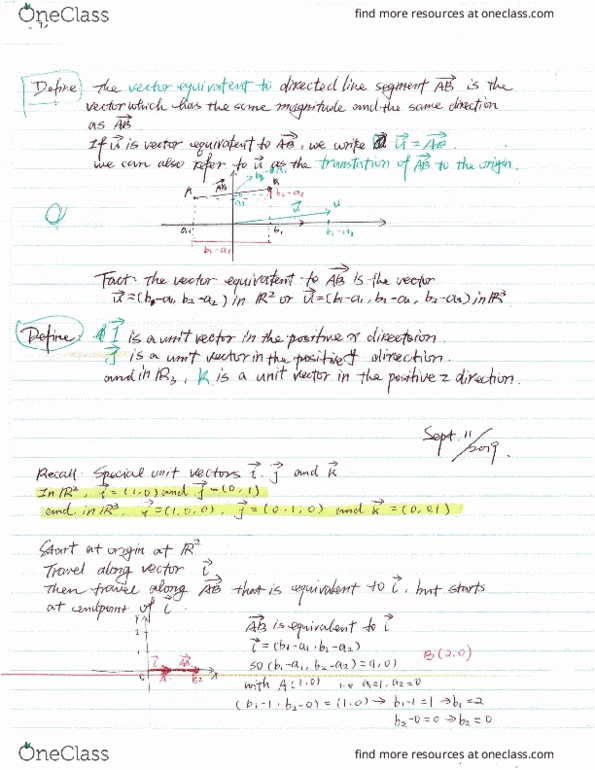 OneClass
find more resources at oneclass.com
Define the vector equivalent to directed line segment AB is the
vector which has the same magnitude and the same direction
as AB
If u is vector equivalent to AB, we write u = AB.
we can also refer to u as the translation of AB to the origin.
A AB B b₂-a₂
u u
a₁ b₁ b₁-a₁
b₁-a₁
Fact: the vector equivalent to AB is the vector
u=(b₁-a₁, b₂-a₂) in R² or u=(b₁-a₁, b₂-a₂, b₃-a₃) in R³
Define: i is a unit vector in the positive x direction.
j is a unit vector in the positive y direction.
and in R3, k is a unit vector in the positive z direction.
Sept. 11/2019.
Recall: Special unit vectors i. j and k
In R², i=(1,0) and j=(0,1)
and in R³. i=(1,0,0), j=(0,1,0) and k=(0,0,1)
Start at origin at R²
Travel along vector i
Then travel along AB that is equivalent to i, but starts
at endpoint of i.
AB is equivalent to i
i=(b₁-a₁, b₂-a₂)
B(2,0)
so (b₁-a₁, b₂-a₂)=(1,0)
with A(1,0) i.e a₁=1, a₂=0
(b₁-1, b₂-0)=(1,0) → b₁-1=1 → b₁=2
b₂-0=0 → b₂=0
y
2
1
i AB
0 A B2 x
OneClass
find more resources at oneclass.com